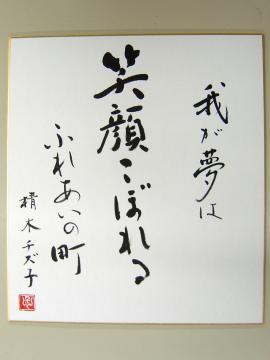 我が夢は
笑顔こぼれる
ふれあいの町
積木チズ子